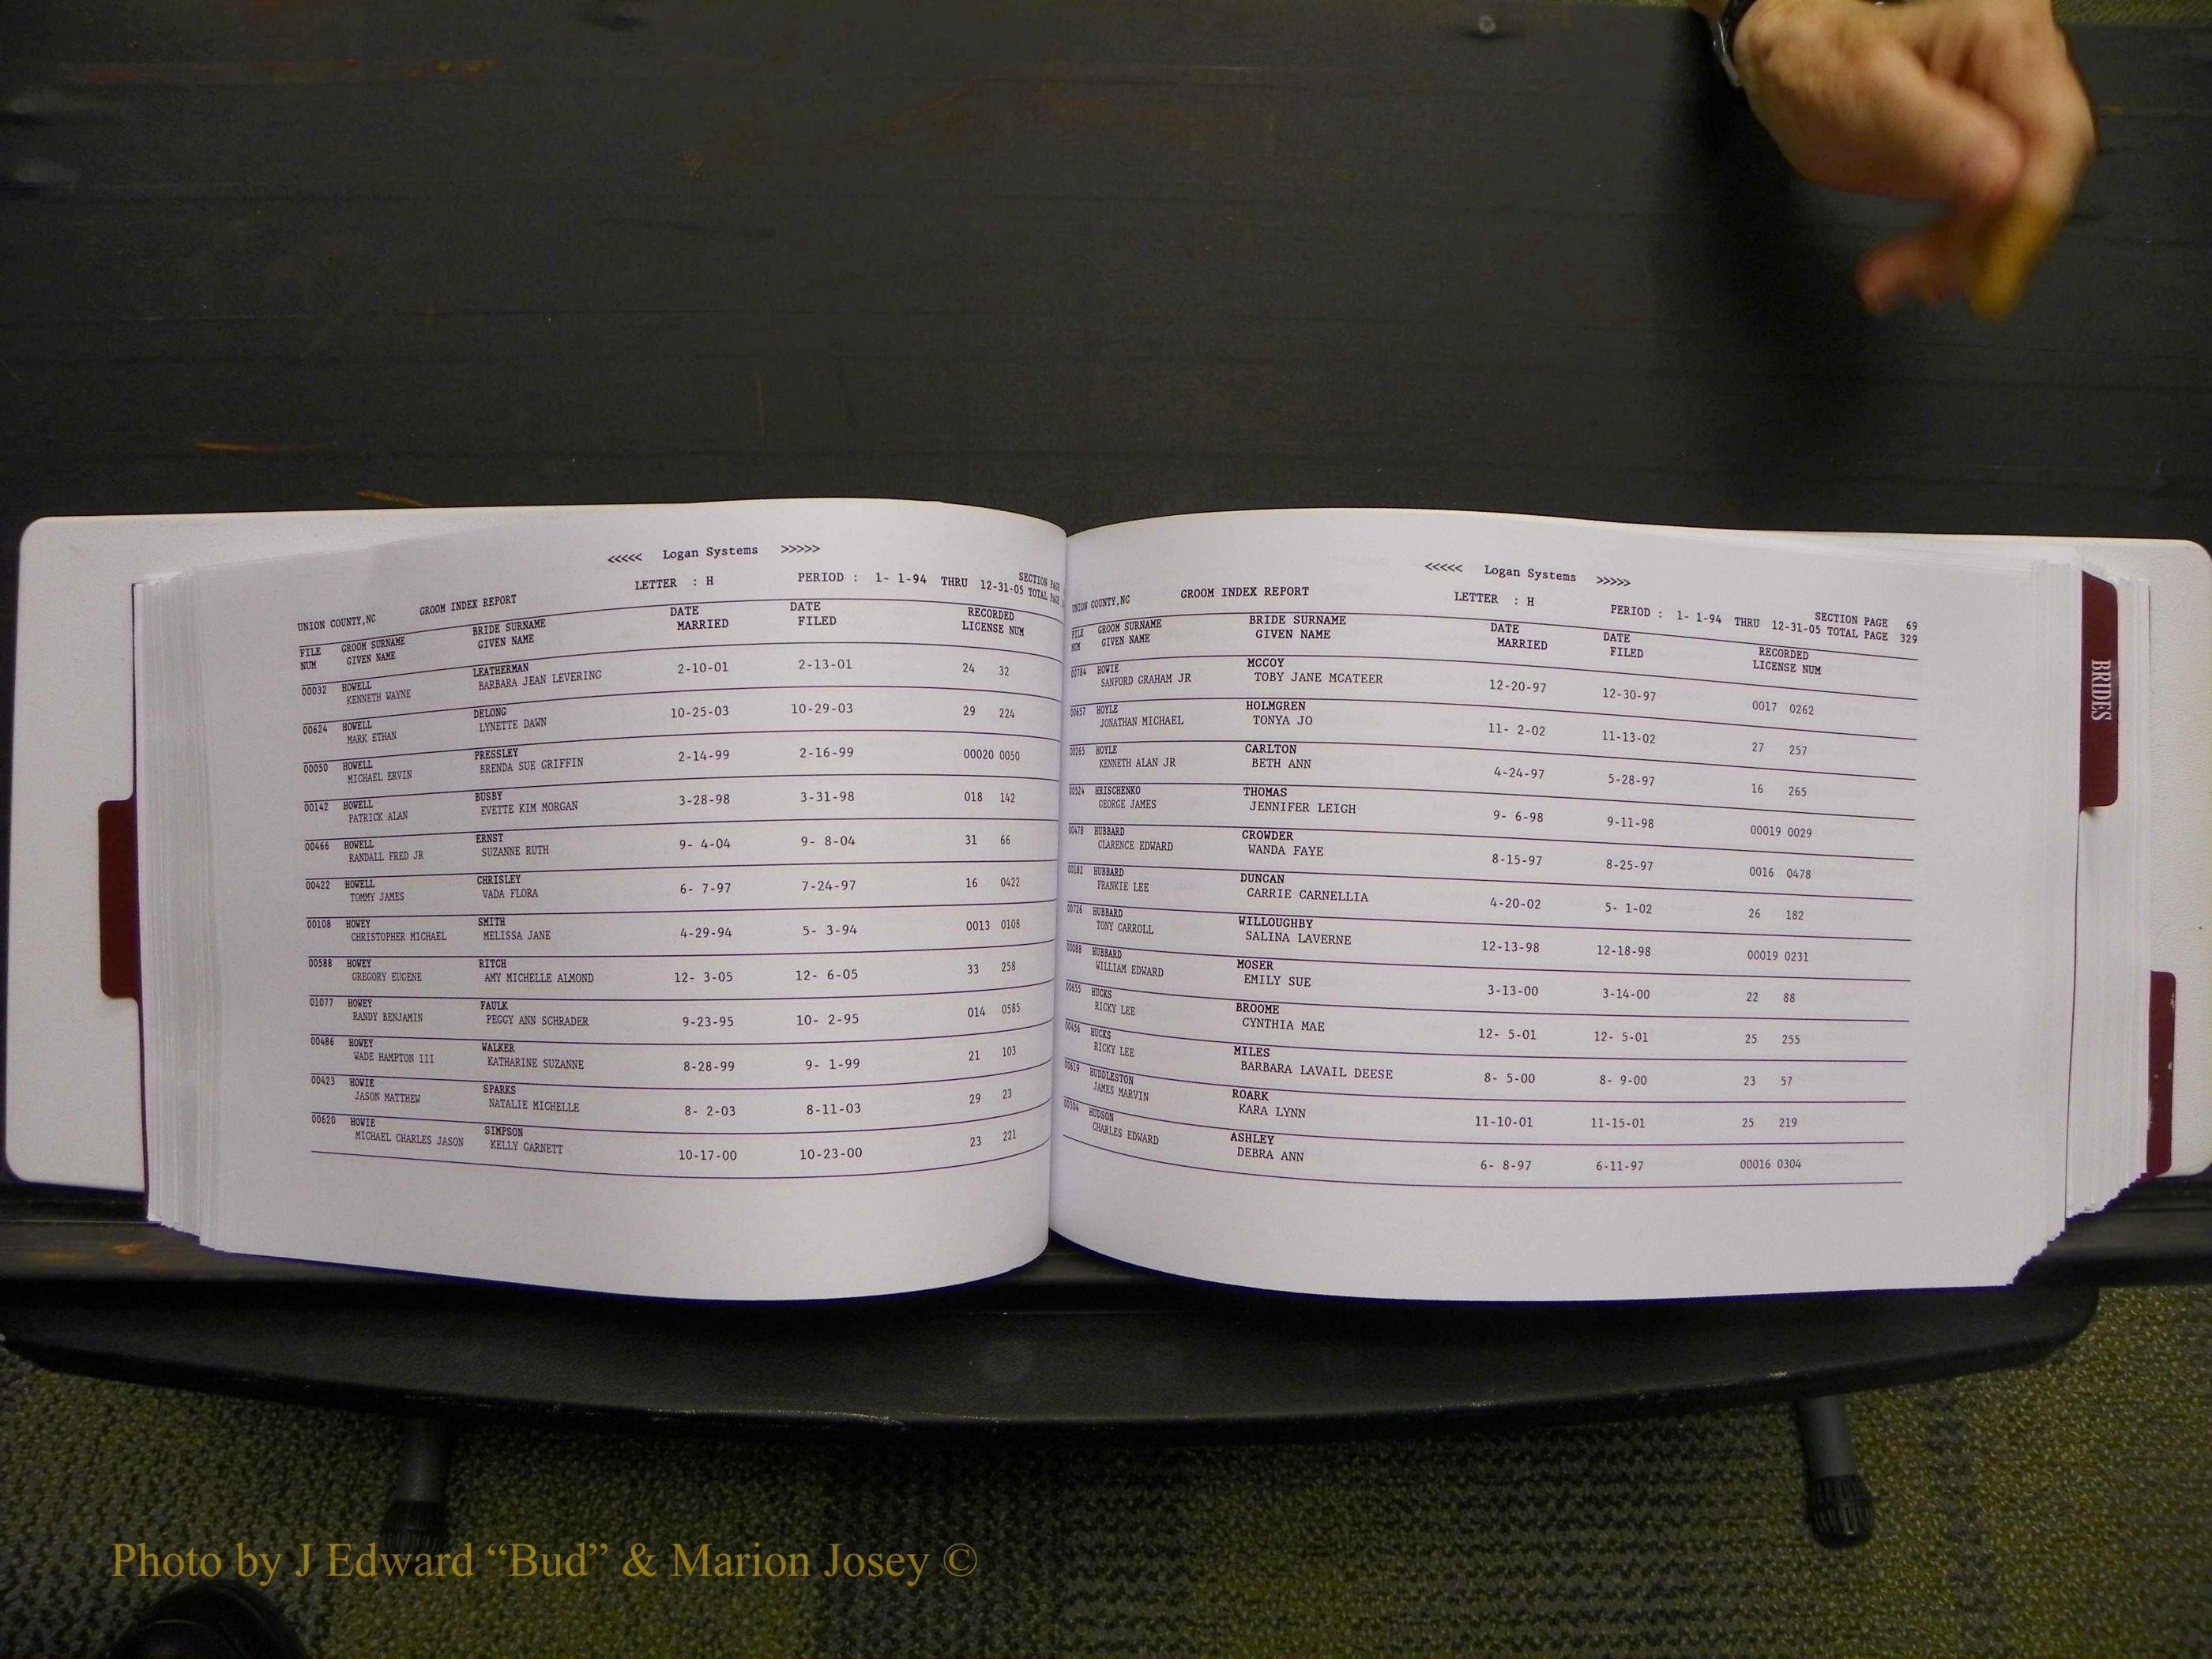 <<<<< Logan Systems >>>>>
UNION COUNTY,NC GROOM INDEX REPORT LETTER : H PERIOD : 1- 1-94 THRU 12-31-05 SECTION PAGE
TOTAL PAGE
FILE GROOM SURNAME BRIDE SURNAME DATE DATE RECORDED
NUM GIVEN NAME GIVEN NAME MARRIED FILED LICENSE NUM
00032 HOWELL LEATHERMAN 2-10-01 2-13-01 24 32
KENNETH WAYNE BARBARA JEAN LEVERING
00624 HOWELL DELONG 10-25-03 10-29-03 29 224
MARK ETHAN LYNETTE DAWN
00050 HOWELL PRESSLEY 2-14-99 2-16-99 00020 0050
MICHAEL ERVIN BRENDA SUE GRIFFIN
00142 HOWELL BUSBY 3-28-98 3-31-98 018 142
PATRICK ALAN EVETTE KIM MORGAN
00466 HOWELL ERNST 9- 4-04 9- 8-04 31 66
RANDALL FRED JR SUZANNE RUTH
00422 HOWELL CHRISLEY 6- 7-97 7-24-97 16 0422
TOMMY JAMES VADA FLORA
00108 HOWEY SMITH 4-29-94 5- 3-94 0013 0108
CHRISTOPHER MICHAEL MELISSA JANE
00588 HOWEY RITCH 12- 3-05 12- 6-05 33 258
GREGORY EUGENE AMY MICHELLE ALMOND
01077 HOWEY FAULK 9-23-95 10- 2-95 014 0585
RANDY BENJAMIN PEGGY ANN SCHRADER
00486 HOWEY WALKER 8-28-99 9- 1-99 21 103
WADE HAMPTON III KATHARINE SUZANNE
00423 HOWIE SPARKS 8- 2-03 8-11-03 29 23
JASON MATTHEW NATALIE MICHELLE
00620 HOWIE SIMPSON 10-17-00 10-23-00 23 221
MICHAEL CHARLES JASON KELLY GARNETT
<<<<< Logan Systems >>>>>
UNION COUNTY,NC GROOM INDEX REPORT LETTER : H PERIOD : 1- 1-94 THRU 12-31-05 SECTION PAGE 69
TOTAL PAGE 329
FILE GROOM SURNAME BRIDE SURNAME DATE DATE RECORDED
NUM GIVEN NAME GIVEN NAME MARRIED FILED LICENSE NUM
00784 HOWIE MCCOY 12-20-97 12-30-97 0017 0262
SANFORD GRAHAM JR TOBY JANE MCATEER
00657 HOYLE HOLMGREN 11- 2-02 11-13-02 27 257
JONATHAN MICHAEL TONYA JO
00265 HOYLE CARLTON 4-24-97 5-28-97 16 265
KENNETH ALAN JR BETH ANN
00524 HRISCHENKO THOMAS 9- 6-98 9-11-98 00019 0029
GEORGE JAMES JENNIFER LEIGH
00478 HUBBARD CROWDER 8-15-97 8-25-97 0016 0478
CLARENCE EDWARD WANDA FAYE
00182 HUBBARD DUNCAN 4-20-02 5- 1-02 26 182
FRANKIE LEE CARRIE CARNELLIA
00726 HUBBARD WILLOUGHBY 12-13-98 12-18-98 00019 0231
TONY CARROLL SALINA LAVERNE
00088 HUBBARD MOSER 3-13-00 3-14-00 22 88
WILLIAM EDWARD EMILY SUE
00655 HUCKS BROOME 12- 5-01 12- 5-01 25 255
RICKY LEE CYNTHIA MAE
00456 HUCKS MILES 8- 5-00 8- 9-00 23 57
RICKY LEE BARBARA LAVAIL DEESE
00619 HUDDLESTON ROARK 11-10-01 11-15-01 25 219
JAMES MARVIN KARA LYNN
00304 HUDSON ASHLEY 6- 8-97 6-11-97 00016 0304
CHARLES EDWARD DEBRA ANN
BRIDES
Photo by J Edward “Bud” & Marion Josey ©